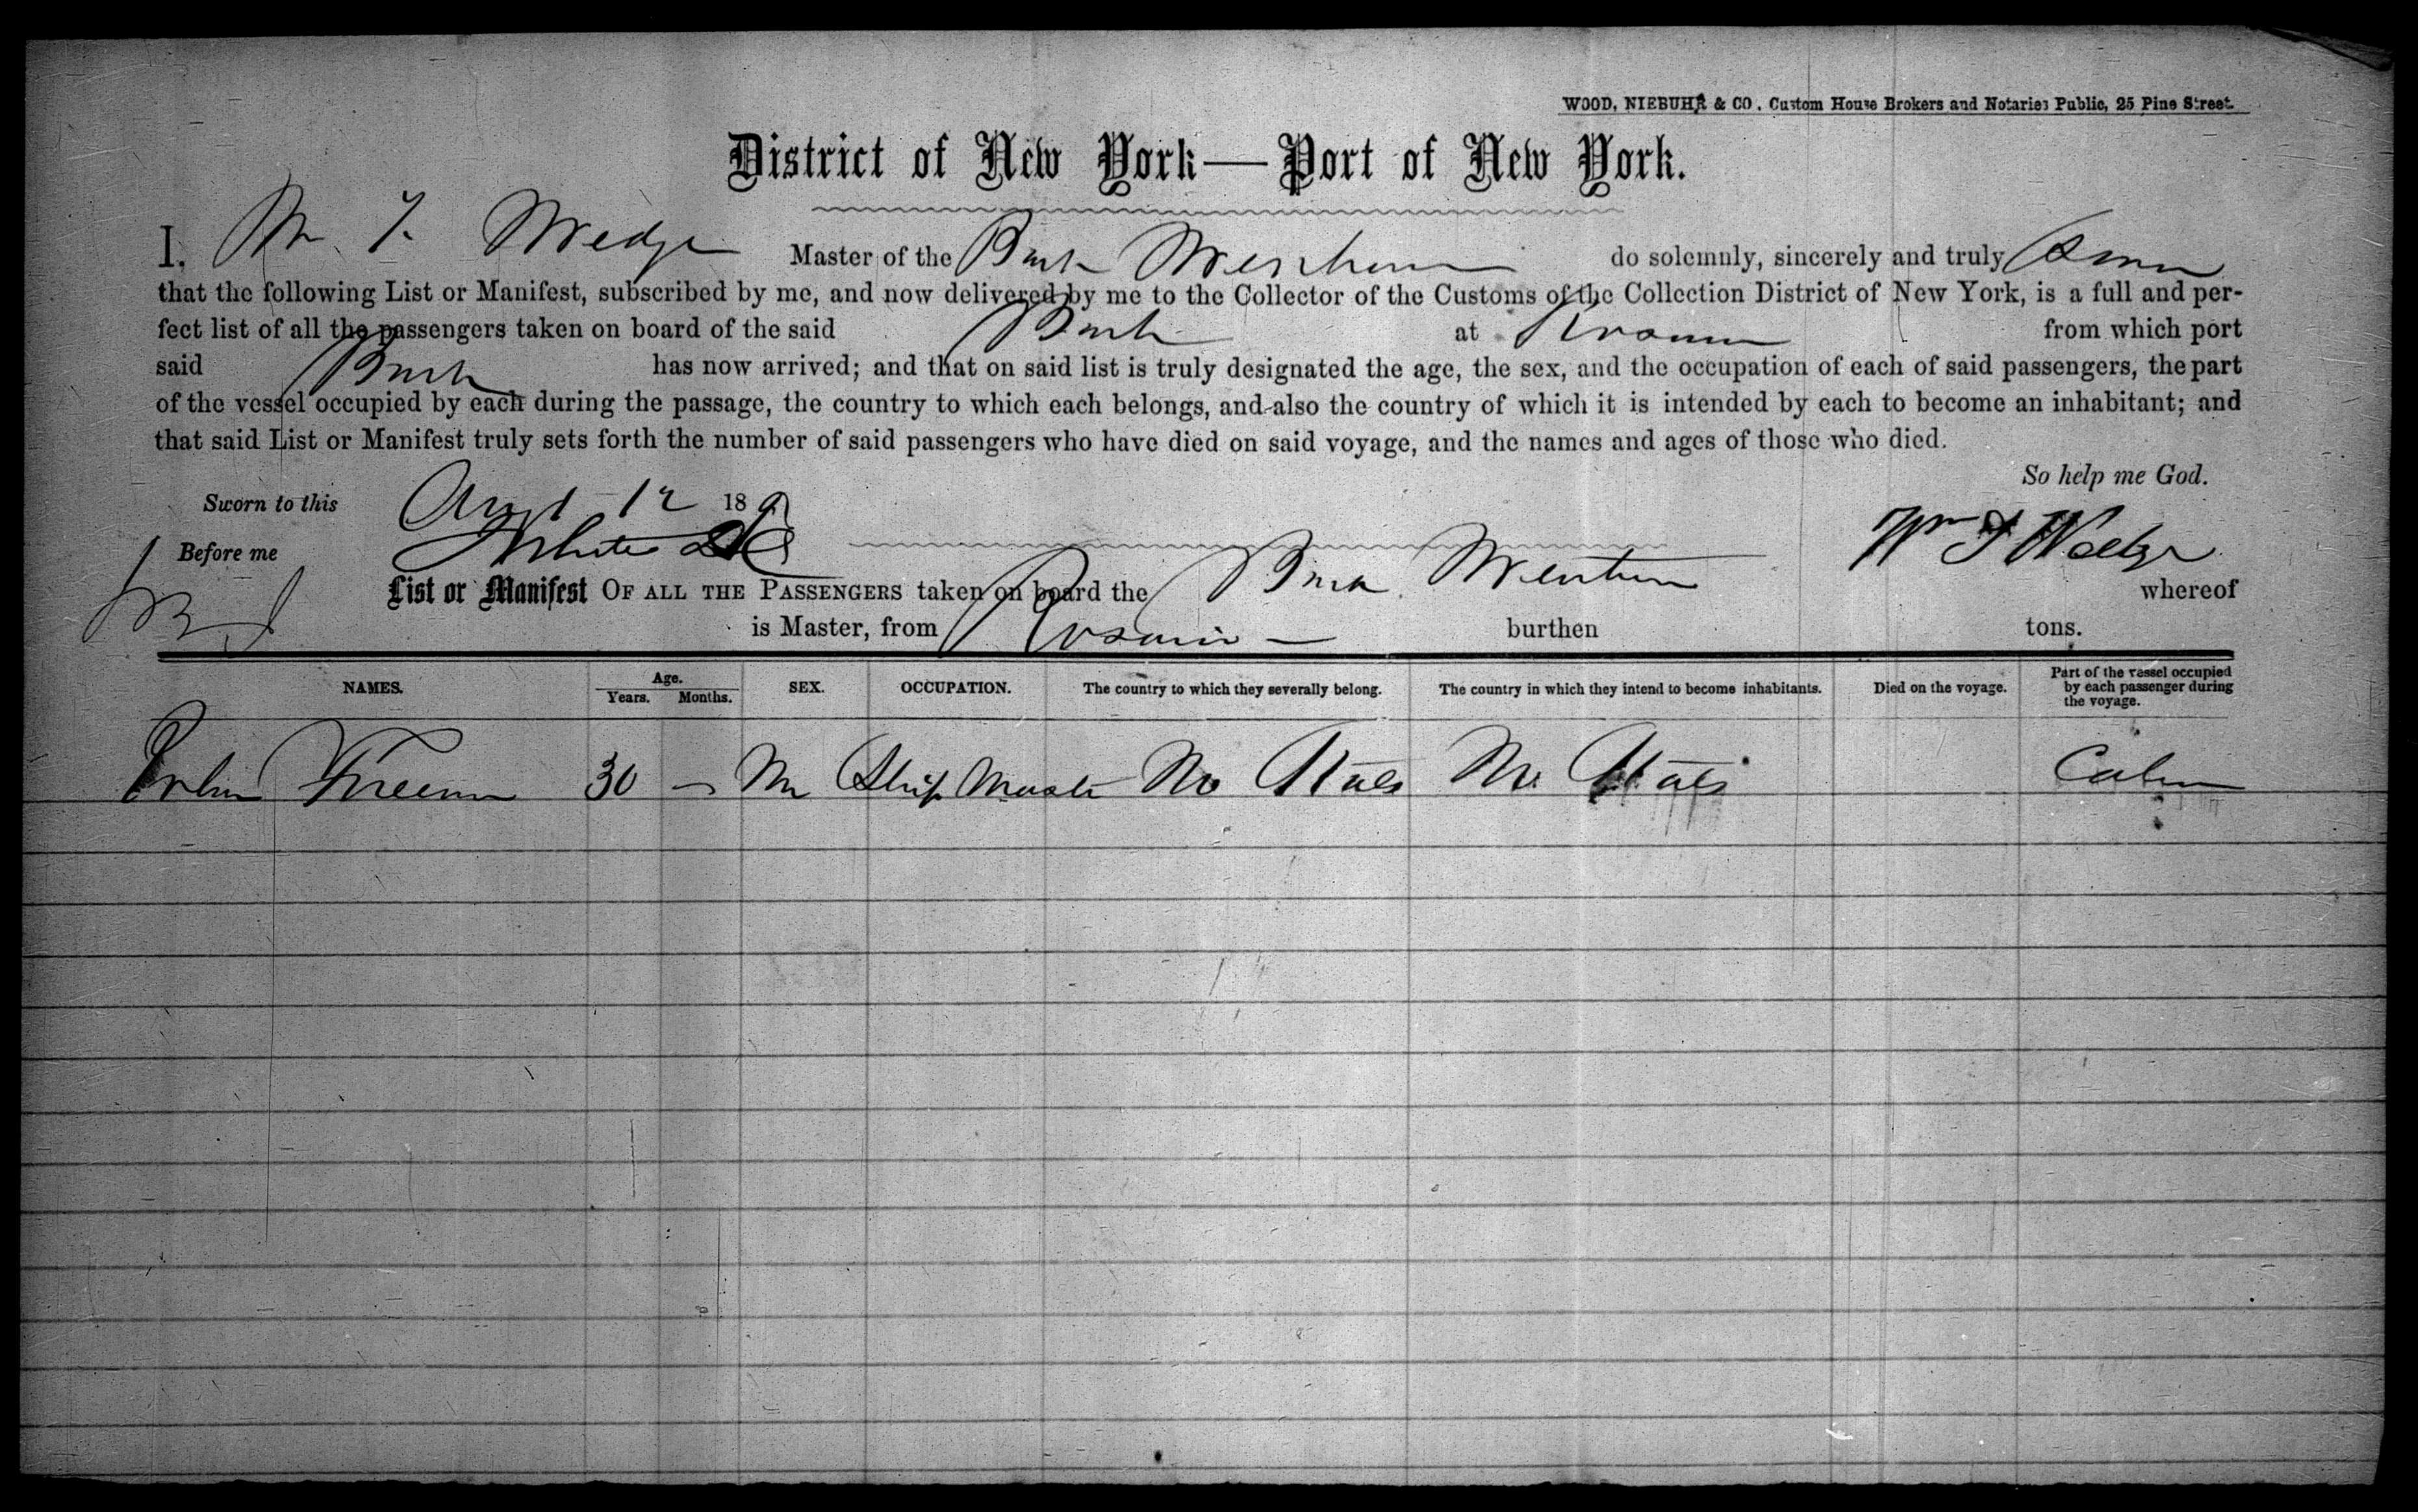 WOOD, NIEBUHR & CO. Custom House Brokers and Notaries Public, 25 Pine Street.
District of New York—Port of New York.
I, Master of the Bark do solemnly, sincerely and truly
that the following List or Manifest, subscribed by me, and now delivered by me to the Collector of the Customs of the Collection District of New York, is a full and per-
fect list of all the passengers taken on board of the said Bark at Rosario from which port
said Bark has now arrived; and that on said list is truly designated the age, the sex, and the occupation of each of said passengers, the part
of the vessel occupied by each during the passage, the country to which each belongs, and also the country of which it is intended by each to become an inhabitant; and
that said List or Manifest truly sets forth the number of said passengers who have died on said voyage, and the names and ages of those who died.
So help me God.
Sworn to this 12 18
Before me
List or Manifest OF ALL THE PASSENGERS taken on board the Bark whereof
is Master, from Rosario — burthen tons.
NAMES. Age. Years. Months. SEX. OCCUPATION. The country to which they severally belong. The country in which they intend to become inhabitants. Died on the voyage. Part of the vessel occupied by each passenger during the voyage.
Freeman 30 — M Ship Master States States Cabin